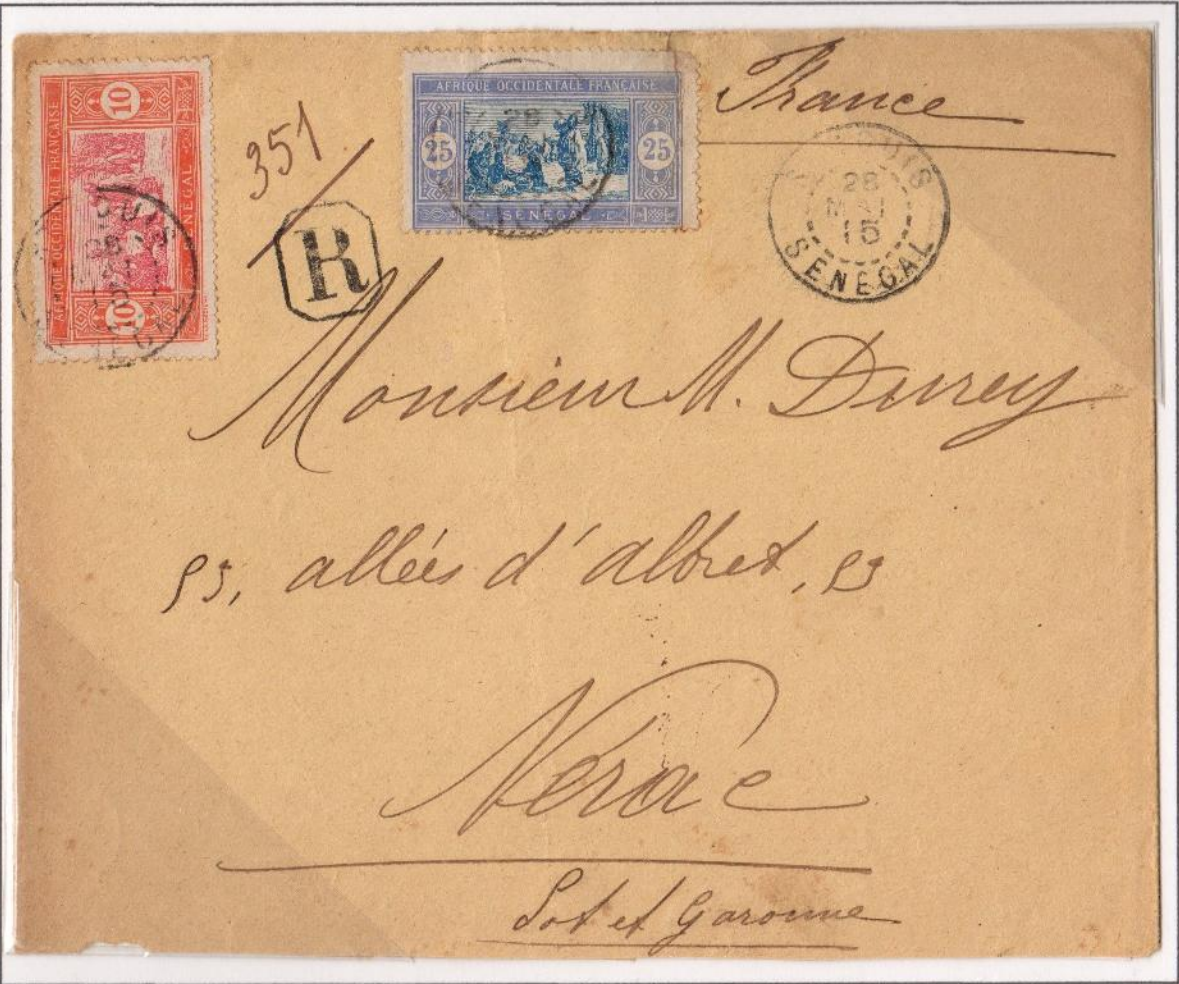 10
AFRIQUE OCCIDENTALE FRANÇAISE
SENEGAL
10
351
R
AFRIQUE OCCIDENTALE FRANÇAISE
25
25
SENEGAL
28
France
28
MAI
15
SENEGAL
Monsieur M. Durey
allées d'albret,
Nérac
Lot et Garonne